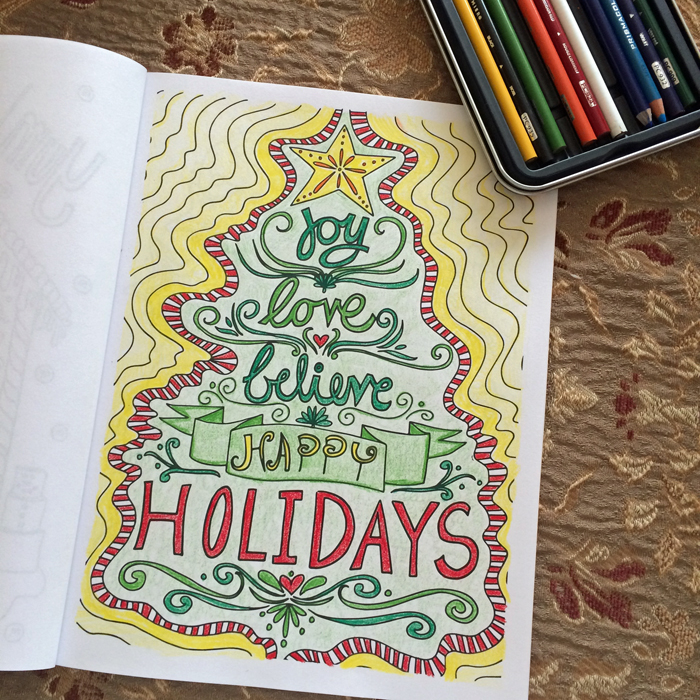 joy
love
believe
HAPPY
HOLIDAYS
PRISMACOLOR